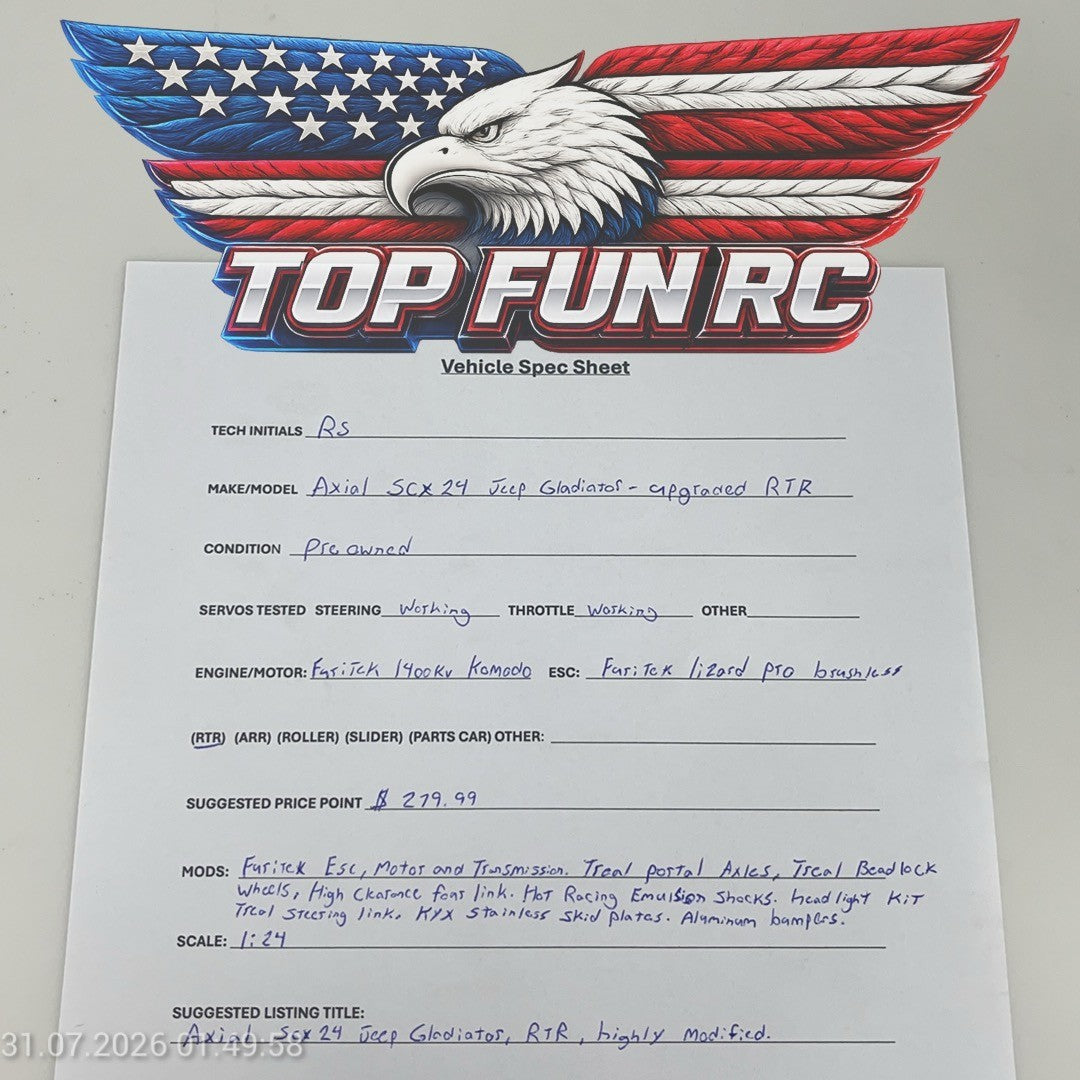 TOP FUN RC
Vehicle Spec Sheet
TECH INITIALS RS
MAKE/MODEL Axial SCX 24 Jeep Gladiator - upgraded RTR
CONDITION Pre owned
SERVOS TESTED STEERING Working THROTTLE Working OTHER
ENGINE/MOTOR: Furitek 1400kv Komodo ESC: Furitek lizard pro brushless
(RTR) (ARR) (ROLLER) (SLIDER) (PARTS CAR) OTHER:
SUGGESTED PRICE POINT $ 279.99
MODS: Furitek Esc, Motor and Transmission. Treal portal Axles, Treal Beadlock
wheels, High Clearance four link. Hot Racing Emulsion Shocks. headlight Kit
Treal steering link. KYX Stainless Skid plates. Aluminum bumpers.
SCALE: 1:24
SUGGESTED LISTING TITLE:
Axial Scx 24 Jeep Gladiator, RTR, highly modified.
31.07.2026 01:49:58